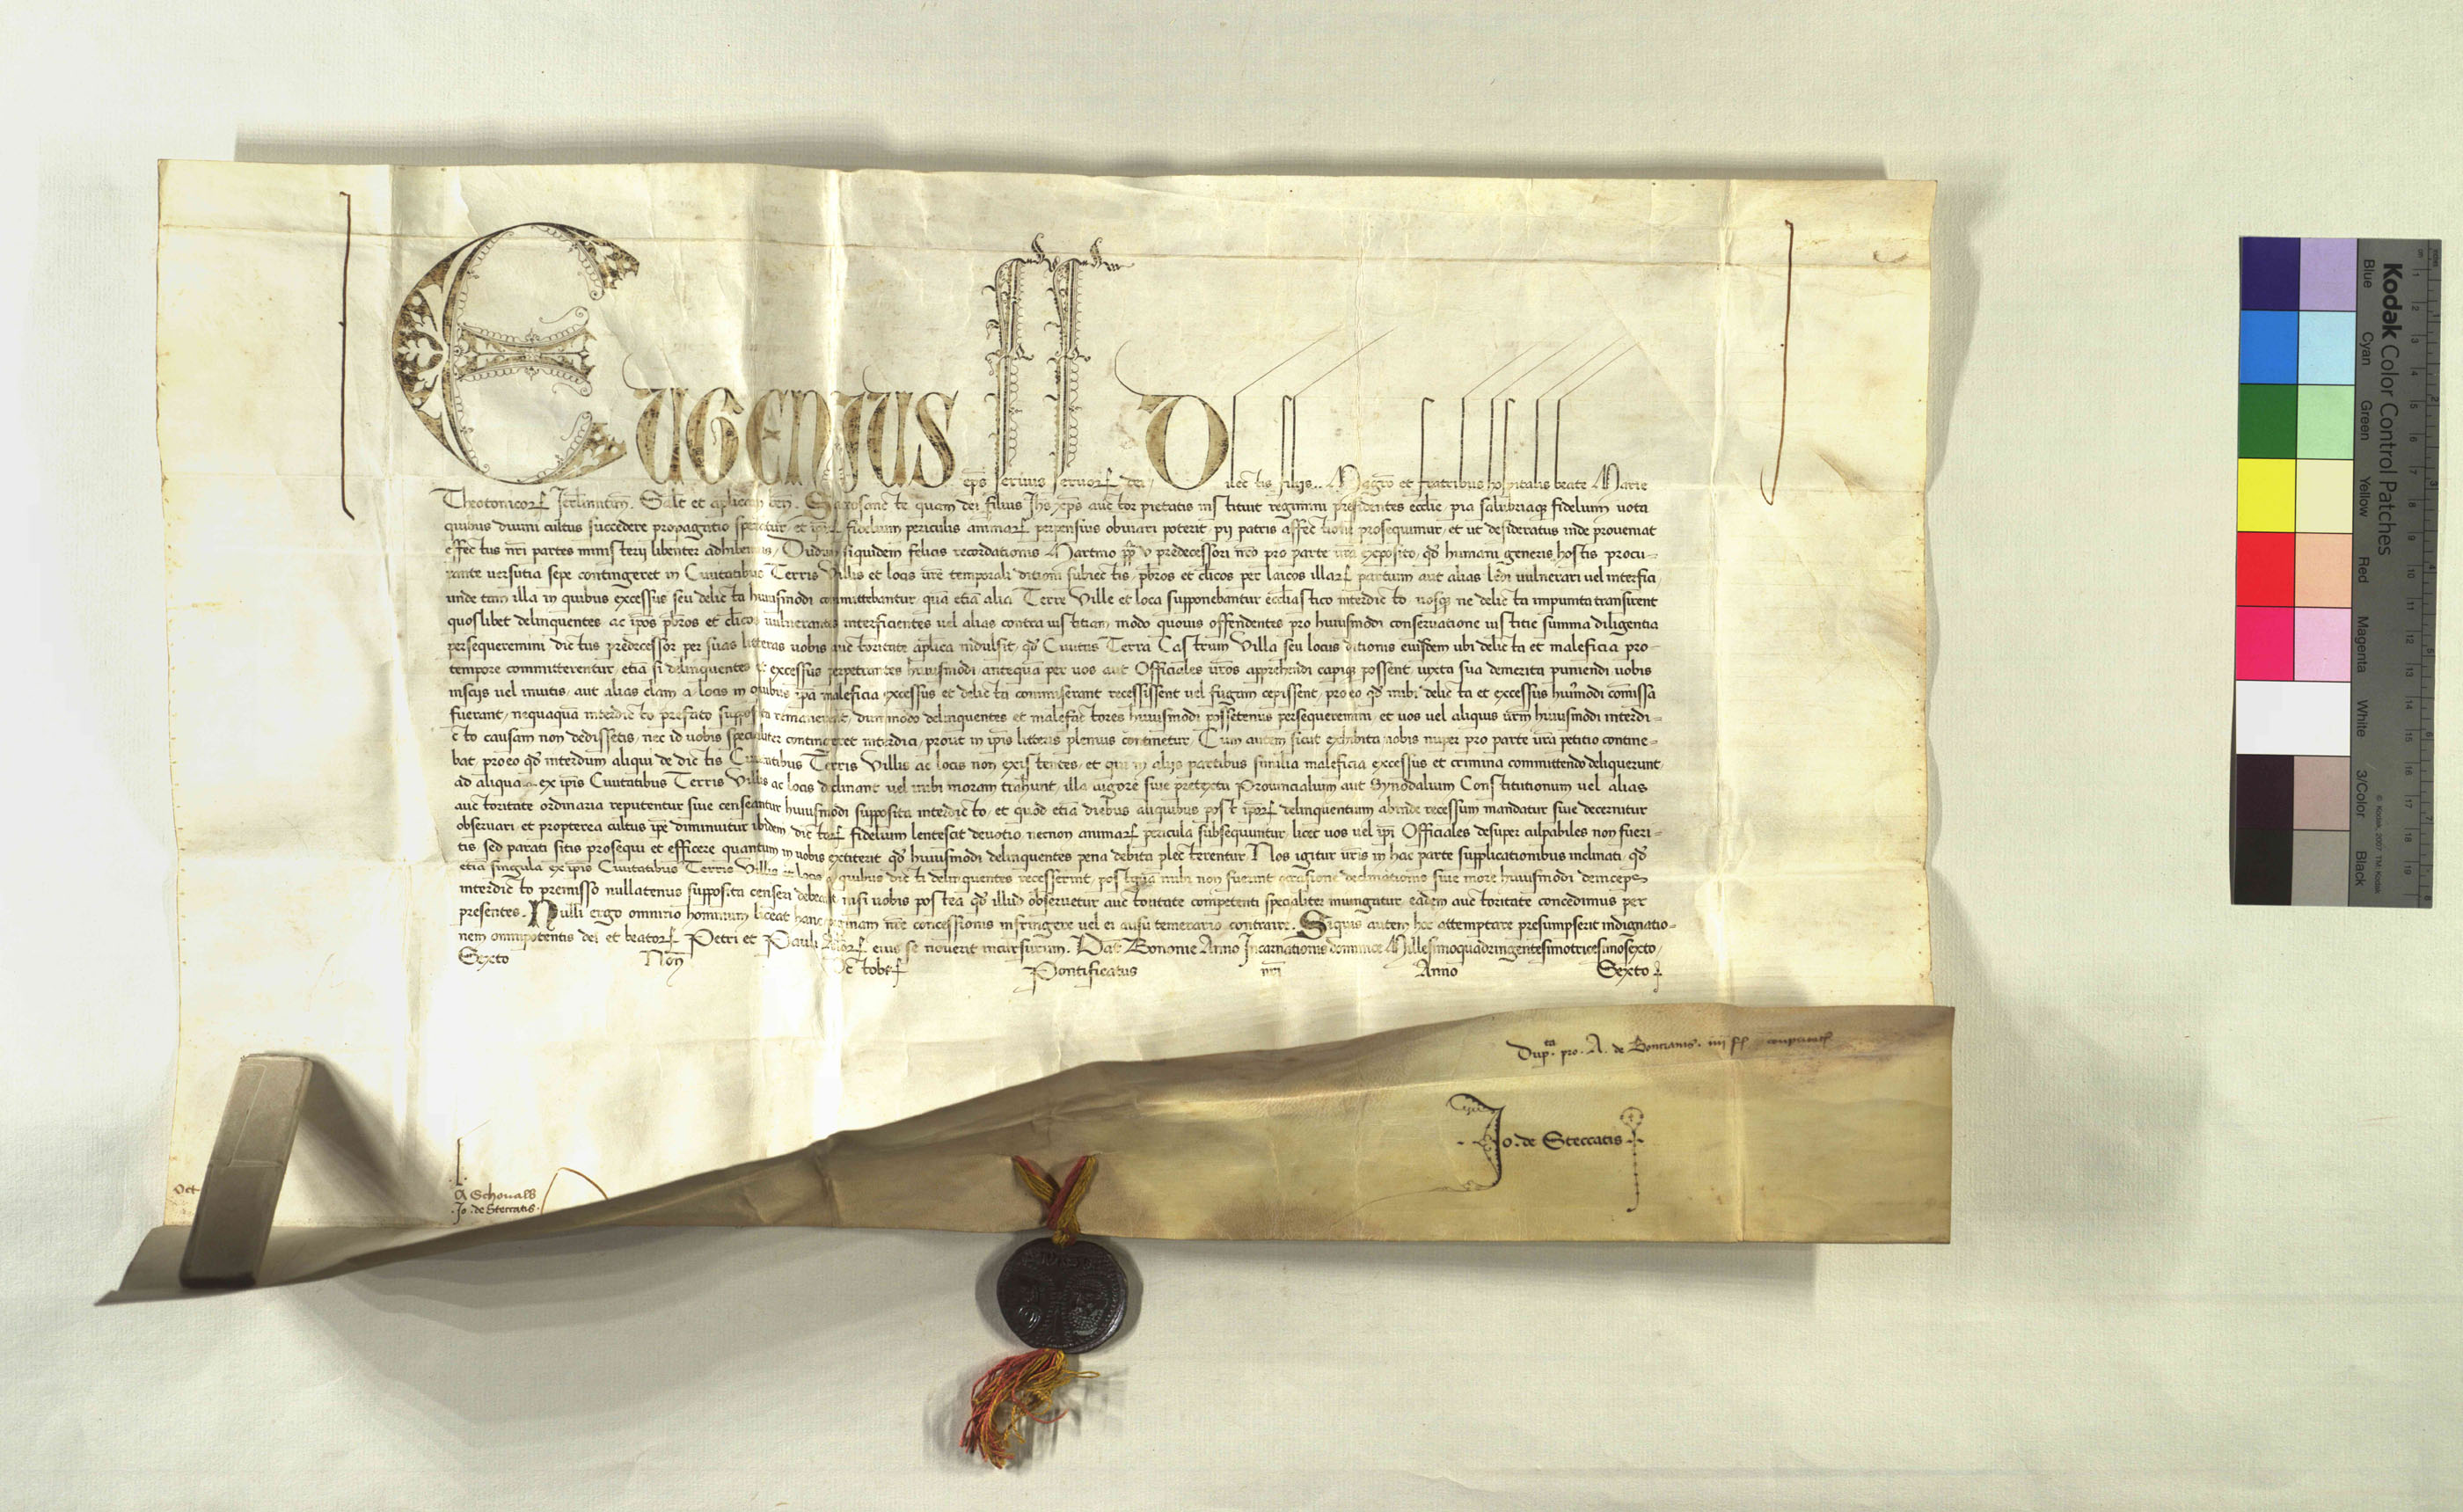 Eugenius eps seruus seruorꝭ dei, Dilectis filijs .. Magrō et fratribus hospitalis beate Marie
Theotonicorꝭ Jerlimitan̄. Salt et aplicam ben̄. quam dei filius Jhs xps auctor pietatis instituit regimini presidentes ecclīe, pia salubriaqꝫ fidelium uota
quibus diuini cultus succedere propagatio speratur, et ipōrꝭ fidelium periculis animarꝭ perpensius obuiari poterit, pij patris affectione prosequimur, et ut desideratus inde proueniat
effectus nrī partes ministerij libenter adhibemus, Dudum siquidem felicis recordationis Martino pp̄ v predecessori nrō pro parte urā exposito, qđ humani generis hostis procu-
rante uersutia sepe contingeret in Ciuitatibus Terris Villis et locis urē temporali ditioni subiectis, pbrōs et clīcos per laicos illarꝭ partium aut alias ledi uulnerari uel interfici,
unde tam illa in quibus excessus seu delicta huiusmodi committebantur, quā etiā alia Terre Ville et loca supponebantur eccliastico interdicto, uosqꝫ ne delicta impunita transirent
quoslibet delinquentes, ac ipōs pbrōs et clīcos uulnerantes interficientes uel alias contra iustitiam modo quouis offendentes pro huiusmodi conseruatione iustitie summa diligentia
persequeremini dictus predecessor per suas litteras uobis auctoritate aplīca indulsit, qđ Ciuitas Terra Castrum Villa seu locus ditionis eiusdem ubi delicta et maleficia pro-
tempore committerentur, etiā si delinquentes et excessus perpetrantes huiusmodi, antequā per uos aut Officiales urōs apprehendi capiqꝫ possent, iuxta sua demerita puniendi uobis
inscijs uel inuitis, aut alias clam a locis in quibus ipā maleficia excessus et delicta commiserant recessissent uel fugam cepissent, pro eo qđ inibi delicta et excessus huiūmodi comissa
fuerant, nequaquā interdicto prefato supposita remanerent, dummodo delinquentes et malefactores huiusmodi possetenus persequeremini, et uos uel aliquis urm̄ huiusmodi interdi-
cto causam non dedissetis, nec id uobis specialiter contingeret interdici, prout in ipīs litteris plenius continetur, Cum autem sicut exhibita nobis nuper pro parte urā petitio contine-
bat, pro eo qđ interdum aliqui de dictis Ciuitatibus Terris Villis ac locis non existentes, et qui in alijs partibus similia maleficia excessus et crimina committendo deliquerunt,
ad aliqua ex ipīs Ciuitatibus Terris Villis ac locis declinant uel inibi moram trahunt, illa uigore siue pretextu Prouincialium aut Synodalium Constitutionum uel alias
auctoritate ordinaria reputentur siue censeantur huiusmodi supposita interdicto, et quod etiā diebus aliquibus post ipōrꝭ delinquentium abinde recessum mandatur siue decernitur
obseruari, et propterea cultus ipē diminuitur ibidem dictorꝭ fidelium lentescit deuotio, necnon animarꝭ pericula subsequuntur, licet uos uel ipī Officiales desuper culpabiles non fueri-
tis, sed parati sitis prosequi et efficere quantum in uobis extiterit qđ huiusmodi delinquentes pena debita plecterentur, Nos igitur urīs in hac parte supplicationibus inclinati, qđ
etiā singula ex ipīs Ciuitatibus Terris Villis et locis a quibus dicti delinquentes recesserint, postquā inibi non fuerint occasione declinationis siue more huiusmodi deinceps
interdicto premisso nullatenus supposita censeri debeant nisi uobis postea qđ illud obseruetur auctoritate competenti specialiter iniungatur, eadem auctoritate concedimus per
presentes. Nulli ergo omnino hominum liceat hanc paginam nrē concessionis infringere uel ei ausu temerario contraire. Siquis autem hoc attemptare presumpserit indignatio-
nem omnipotentis dei et beatorꝭ Petri et Pauli Aplōrꝭ eius se nouerit incursurum. Dat Bononie Anno Incarnationis dominice Millesimoquadringentesimotricesimosexto,
Sexto Non̄ Octobrꝭ Pontificatus nrī Anno Sexto
Dupta. pro. A. de
Jo. de Steccatis
Oct
Jo. de Steccatis.
Kodak Color Control Patches
© Kodak, 2007 TM: Kodak
Blue Cyan Green Yellow Red Magenta White 3/Color Black
1 2 3 4 5 6 7 8 9 10 11 12 13 14 15 16 17 18 19